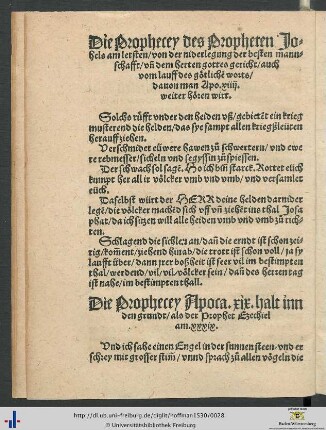 Die Prophecey des Propheten Jo-
hels am letsten/von der niderlegung der besten mann-
schafft/vñ dem herten gottes gericht/auch
vom lauff des götliche worts/
dauon man Apo.xiiij.
weiter hören wirt.
Solchs rüfft vnder den heiden vß/gebietet ein krieg
musterend die helden/das sye sampt allen kriegßleüten
herauff ziehen.
Verschmidet eüwere hawen zů schwertern/vnd ewe
re rebmesser/sicheln vnd segyssin zů spiessen.
Der schwach sol sagē. Ho ich bin starck. Rottet eüch
kumpt her all ir völcker vmb vnd vmb/vnd versamlet
eüch.
Daselbst würt der HERR deine helden darnider
legē/die völcker machēd sich vff vñ ziehēt ins thal Josa
phat/da ich sitzen will alle heiden vmb vnd vmb zů rich-
ten.
Schlagend die sichlen an/dañ die ernd ist schon zei-
tig/komēt/ziehend hinab/die trott ist schon voll/ja sy
laufft über/dann yrer boßheit ist seer vil im bestimpten
thal/werdend/vil/vil völcker sein/dañ des herren tag
ist nahe/im bestimpten thall.
Die Prophecey Apoca. xix. halt inn
den grundt/als der Prophet Ezechiel
am.xxxix.
Vnd ich sahe einen Engel in der sunnen steen/vnd er
schrey mit grosser stim̃/vnnd sprach zů allen vögeln die
http://dl.ub.uni-freiburg.de/diglit/hoffman1530/0028
© Universitätsbibliothek Freiburg
Baden-Württemberg